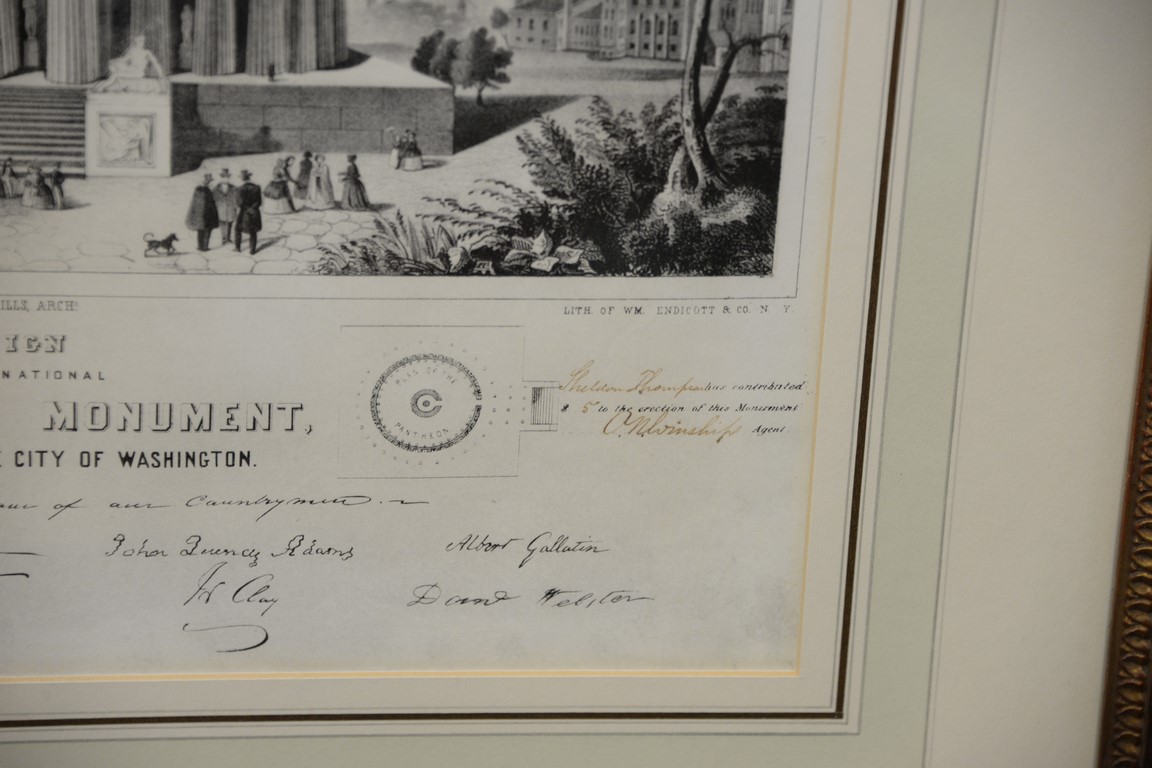 ILLS, ARCHT.
LITH. OF WM. ENDICOTT & CO. N. Y.
IGN
NATIONAL
MONUMENT,
CITY OF WASHINGTON.
PLAN OF THE
PANTHEON
Sheldon Thompson has contributed
$ 5 to the erection of this Monument
O. N. Winship Agent.
of our Countrymen.
John Quincy Adams
Albert Gallatin
H Clay
Danl Webster